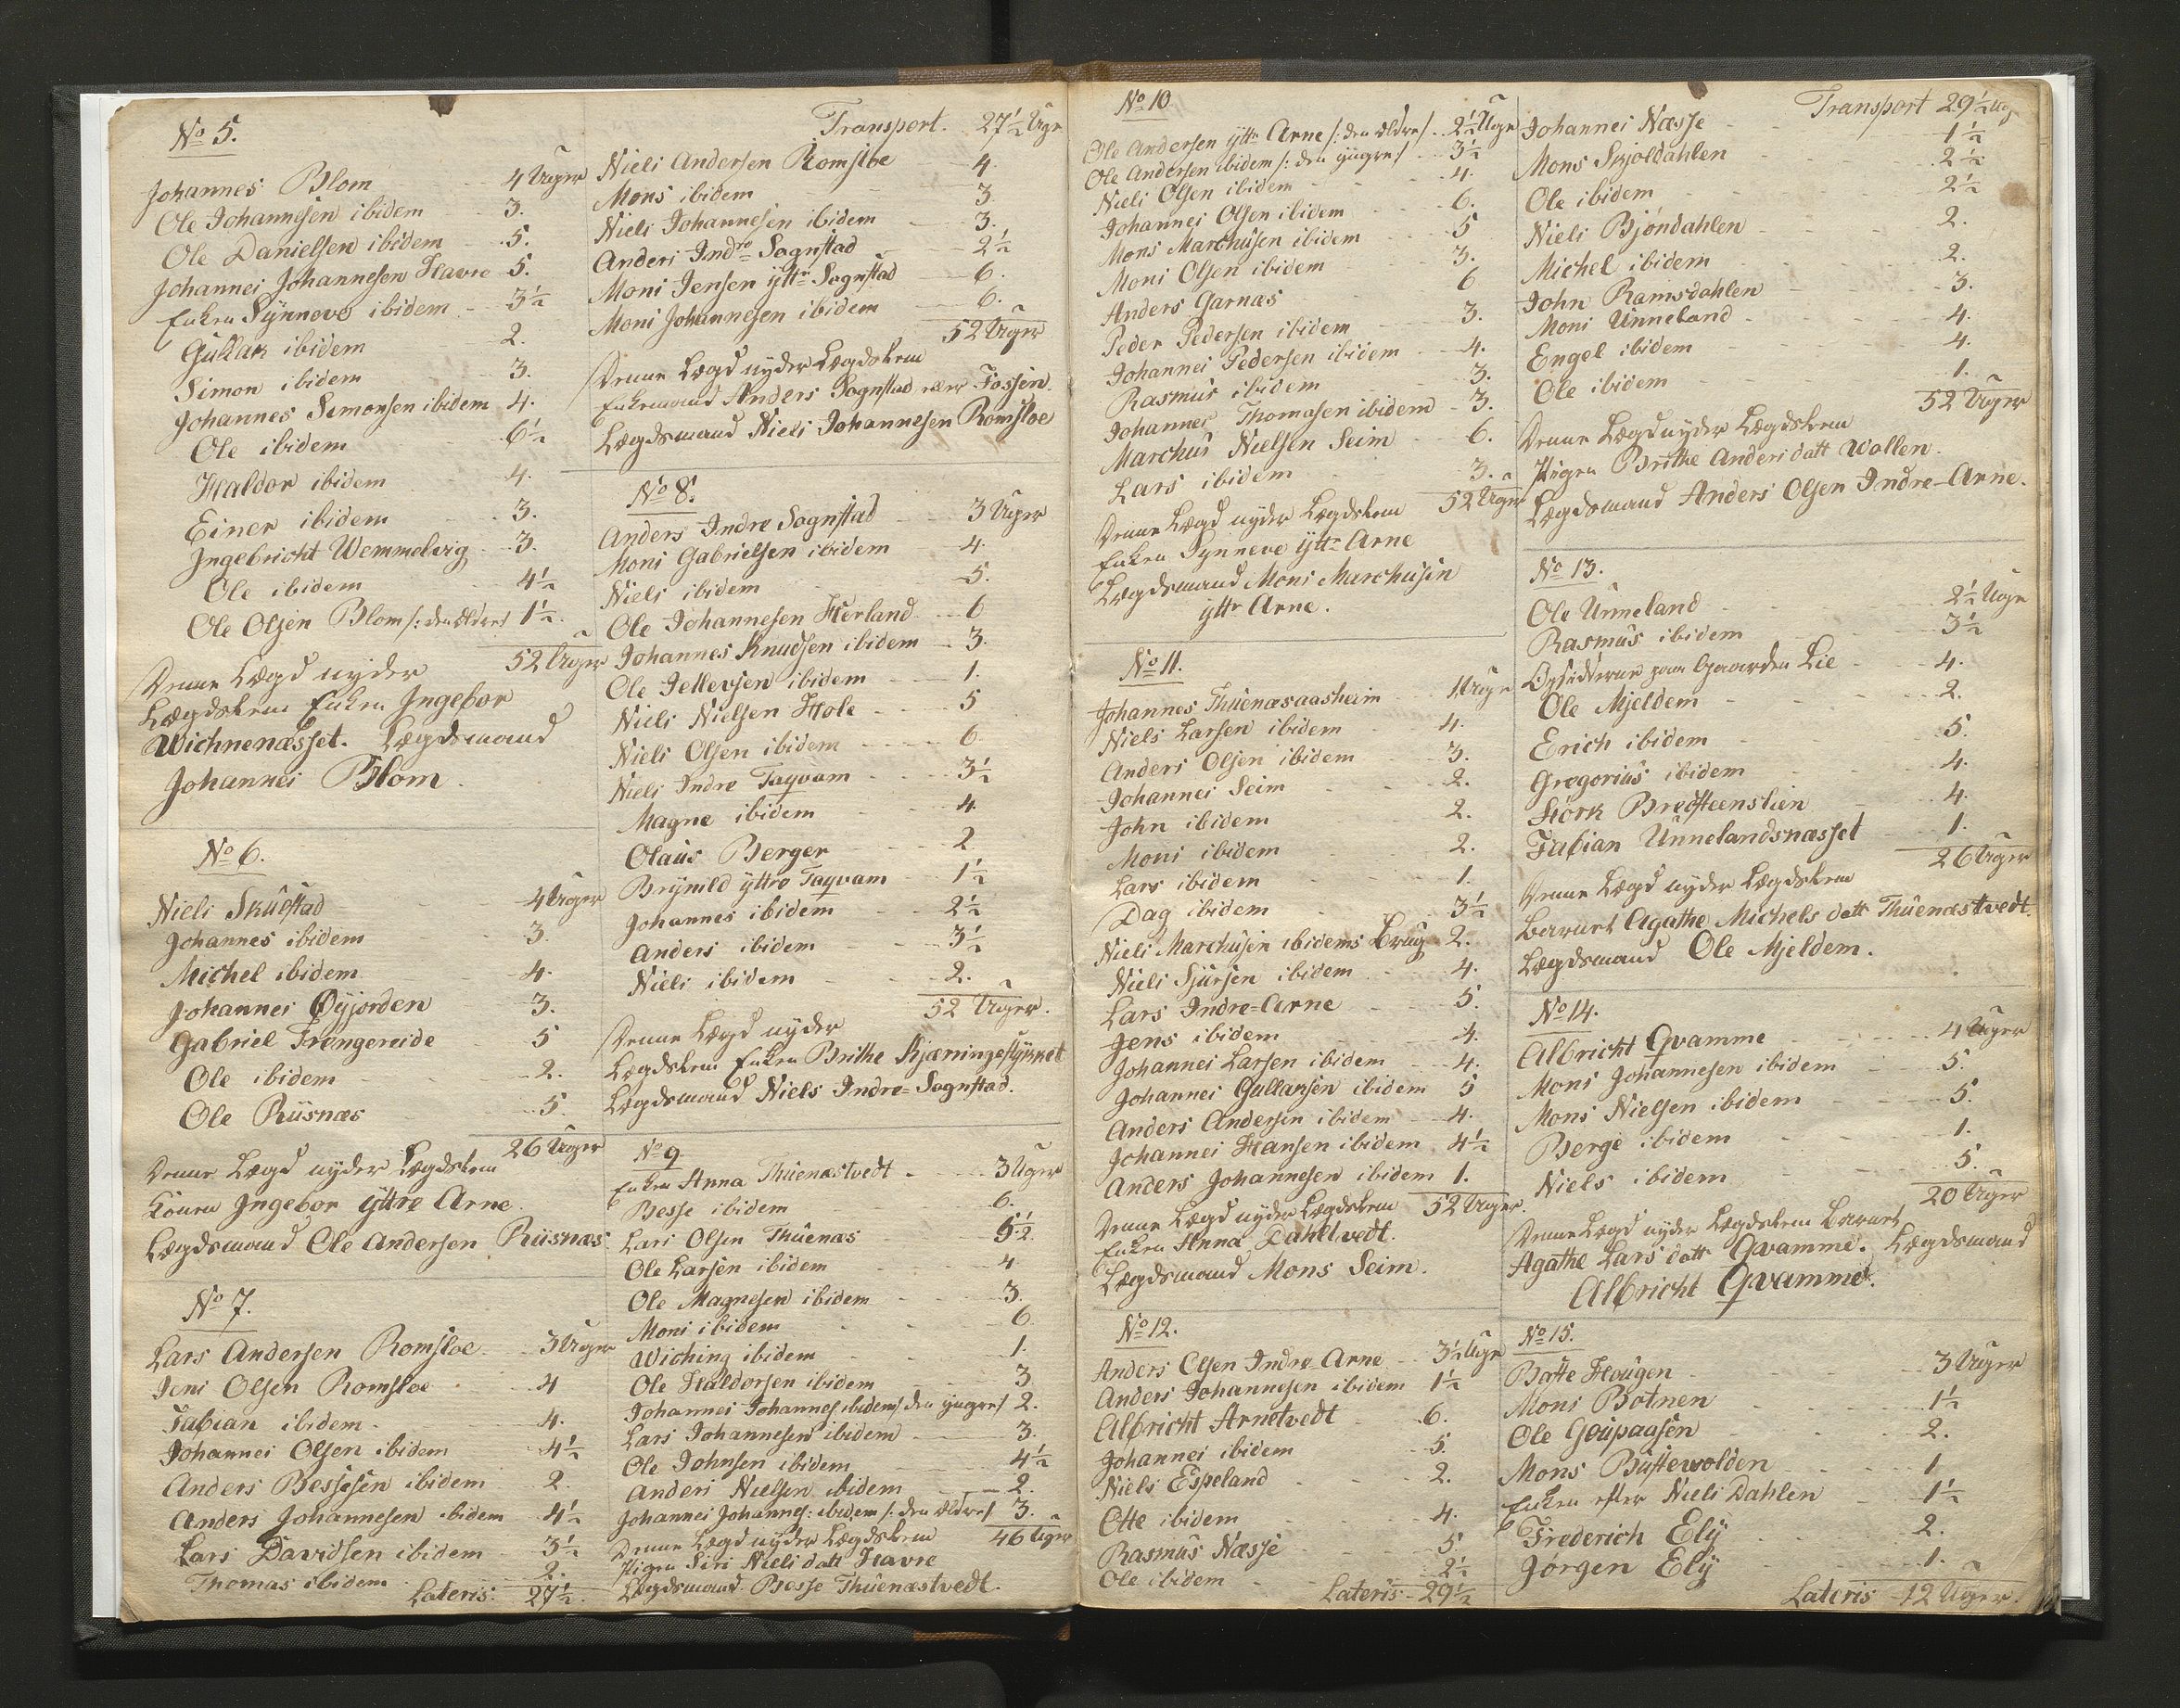 No 5.
Johannes Blom 4 Uger
Ole Johannesen ibidem 3.
Ole Danielsen ibidem 5.
Johannes Johannesen Havre 5.
Enken Synneve ibidem 3½
Gullak ibidem 2.
Simon ibidem 3.
Johannes Simonsen ibidem 4.
Ole ibidem 6½
Haldor ibidem 4.
Einer ibidem 3.
Ingebricht Wemmelvig 3.
Ole ibidem 4½
Ole Olsen Blom /: den Eldre/ 1½.
52 Uger
Denne Lægd nyder
Lægdslem Enken Ingebor
Wichnenæsset. Lægdsmand
Johannes Blom.
No 6.
Niels Skulstad 4 Uger
Johannes ibidem 3.
Michel ibidem 4.
Johannes Øyjorden 3.
Gabriel Trongereide 5
Ole ibidem 2.
Ole Riisnæs 5.
26 Uger
Denne Lægd nyder Lægdslem
Konen Ingebor Yttre Arne.
Lægdsmand Ole Andersen Riisnæs
No 7.
Lars Andersen Romsloe 3 Uger
Jens Olsen Romsloe 4
Fabian ibidem 4.
Johannes Olsen ibidem 4½
Anders Bessesen ibidem 2.
Anders Johannesen ibidem 4½
Lars Davidsen ibidem 3½
Thomas ibidem 2.
Lateris: 27½.
Transport. 27½ Uger
Niels Andersen Romsloe 4.
Mons ibidem 3.
Niels Johannesen ibidem 3.
Anders Indre Sognstad 2½
Mons Jensen yttr Sognstad 6.
Mons Johannesen ibidem 6.
52 Uger
Denne Lægd nyder Lægdslem
Enkemand Anders Sognstad eller Fossen.
Lægdsmand Niels Johannesen Romsloe
No 8.
Anders Indre Sognstad 3 Uger
Mons Gabrielsen ibidem 4.
Niels ibidem 5.
Ole Johannesen Herland 6
Johannes Knudsen ibidem 3.
Ole Dellevsen ibidem 1.
Niels Nielsen Hole 5
Niels Olsen ibidem 6
Niels Indre Taqvam 3½
Magne ibidem 4
Olaus Berger 2
Brynild yttre Taqvam 1½
Johannes ibidem 2½
Anders ibidem 3½
Niels ibidem 2.
52 Uger.
Denne Lægd nyder
Lægdslem Enken Brithe Kjæningestykket
Lægdsmand Niels Indre-Sognstad.
No 9
Enken Anna Thuenæstvedt 3 Uger
Besse ibidem 6.
Lars Olsen Thuenæs 5½
Ole Larsen ibidem 4
Ole Magnesen ibidem 3.
Mons ibidem 6
Wiching ibidem 1.
Ole Haldorsen ibidem 3
Johannes Johannes: ibidem/ den yngre/ 2.
Lars Johannesen ibidem 3.
Ole Johnsen ibidem 4½
Anders Nielsen ibidem 2.
Johannes Johannes: ibidem /: den ældre/ 3.
46 Uger
Denne Lægd nyder Lægdslem
Pigen Siri Niels datt Havre
Lægdsmand Besse Thuenæstvedt.
No 10
Ole Andersen yttr Arne /: den ældre/ 2½ Uger
Ole Andersen ibidem /: den yngre/ 3½
Niels Olsen ibidem 4.
Johannes Olsen ibidem 6.
Mons Marchusen ibidem 5
Mons Olsen ibidem 3.
Anders Garnæs 6
Peder Pedersen ibidem 3.
Johannes Pedersen ibidem 4.
Rasmus ibidem 3.
Johannes Thomasen ibidem 3.
Marchus Nielsen Seim 6.
Lars ibidem 3.
52 Uger
Denne Lægd nyder Lægdslem
Enken Synneve yttr Arne
Lægdsmand Mons Marchusen
yttr Arne.
No 11.
Johannes Thuenæsaasheim 1 Uge
Niels Larsen ibidem 4.
Anders Olsen ibidem 3.
Johannes Seim 2.
John ibidem 2.
Mons ibidem 2.
Lars ibidem 1.
Dag ibidem 3½
Niels Marchusen ibidems Brug 2.
Niels Sjursen ibidem 4.
Lars Indre-Arne 5.
Jens ibidem 4.
Johannes Larsen ibidem 4.
Johannes Gullaksen ibidem 5
Anders Andersen ibidem 4.
Johannes Hansen ibidem 4½
Anders Johannesen ibidem 1.
52 Uger.
Denne Lægd nyder Lægdslem
Enken Anna Dahltvedt.
Lægdsmand Mons Seim.
No 12.
Anders Olsen Indre-Arne 3½ Uge
Anders Johannesen ibidem 1½
Albricht Arnetvedt 6.
Johannes ibidem 5.
Niels Espeland 2.
Otte ibidem 4.
Rasmus Næsse 5.
Ole ibidem 2½
Lateris - 29½
Transport 29½ Ug
Johannes Næsse 1½
Mons Skjoldahlen 2½
Ole ibidem 2½
Niels Bjøndahlen 2.
Michel ibidem 2.
John Ramsdahlen 3.
Mons Unneland 4.
Engel ibidem 4.
Ole ibidem 1.
52 Uger
Denne Lægd nyder Lægdslem
Pigen Brithe Anders datt Wollen.
Lægdsmand Anders Olsen Indre-Arne.
No 13.
Ole Unneland 2½ Uge
Rasmus ibidem 3½
Opsidderne paa Gaarden Lie 4.
Ole Mjeldem 2.
Erich ibidem 5.
Gregorius ibidem 4.
Størk Bredsteenslien 4.
Fabian Unnelandsnæsset 1.
26 Uger
Denne Lægd nyder Lægdslem
Barnet Agathe Michels datt Thuenæstvedt.
Lægdsmand Ole Mjeldem.
No 14.
Albricht Qvamme 4 Uger
Mons Johannesen ibidem 5.
Mons Nielsen ibidem 5.
Berge ibidem 1.
Niels ibidem 5.
20 Uger
Denne Lægd nyder Lægdslem Barnet
Agathe Lars datt Qvamme. Lægdsmand
Albricht Qvamme.
No 15.
Batte Hougen 3 Uger
Mons Botnen 1½
Ole Goupaasen 2.
Mons Büstevolden 1
Enken efter Niels Dahlen 1½
Frederich Ely 2.
Jørgen Ely 1.
Lateris 12 Uger.